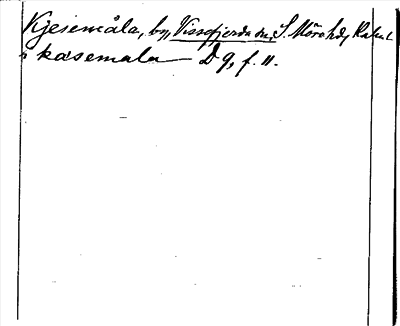 Kjesemåla, by, Vissefjerda sn, S. Möre hd, Kalm. l
i kæsemala — D 9, f. 11.